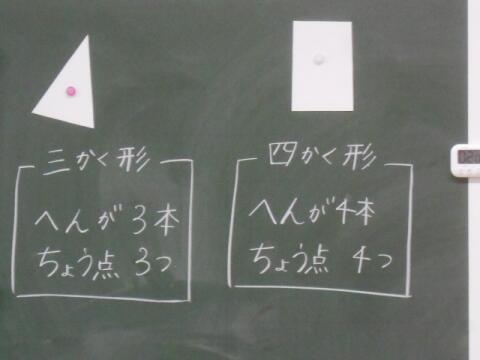 三かく形
へんが3本
ちょう点 3つ
四かく形
へんが4本
ちょう点 4つ